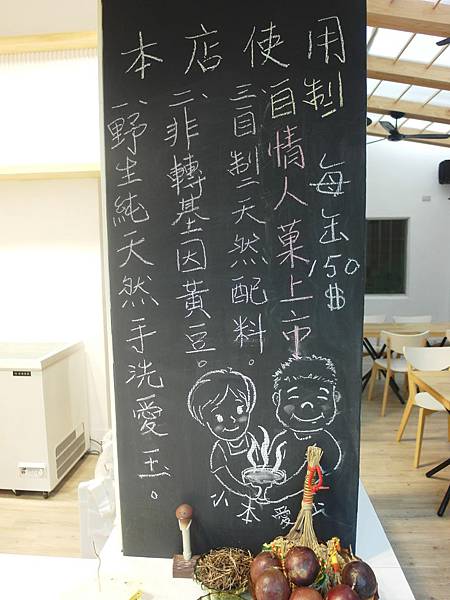 本店使用
一、野生純天然手洗愛玉。
二、非轉基因黃豆。
三、自製天然配料。
自制
情人菓上市
每缶150$
本愛